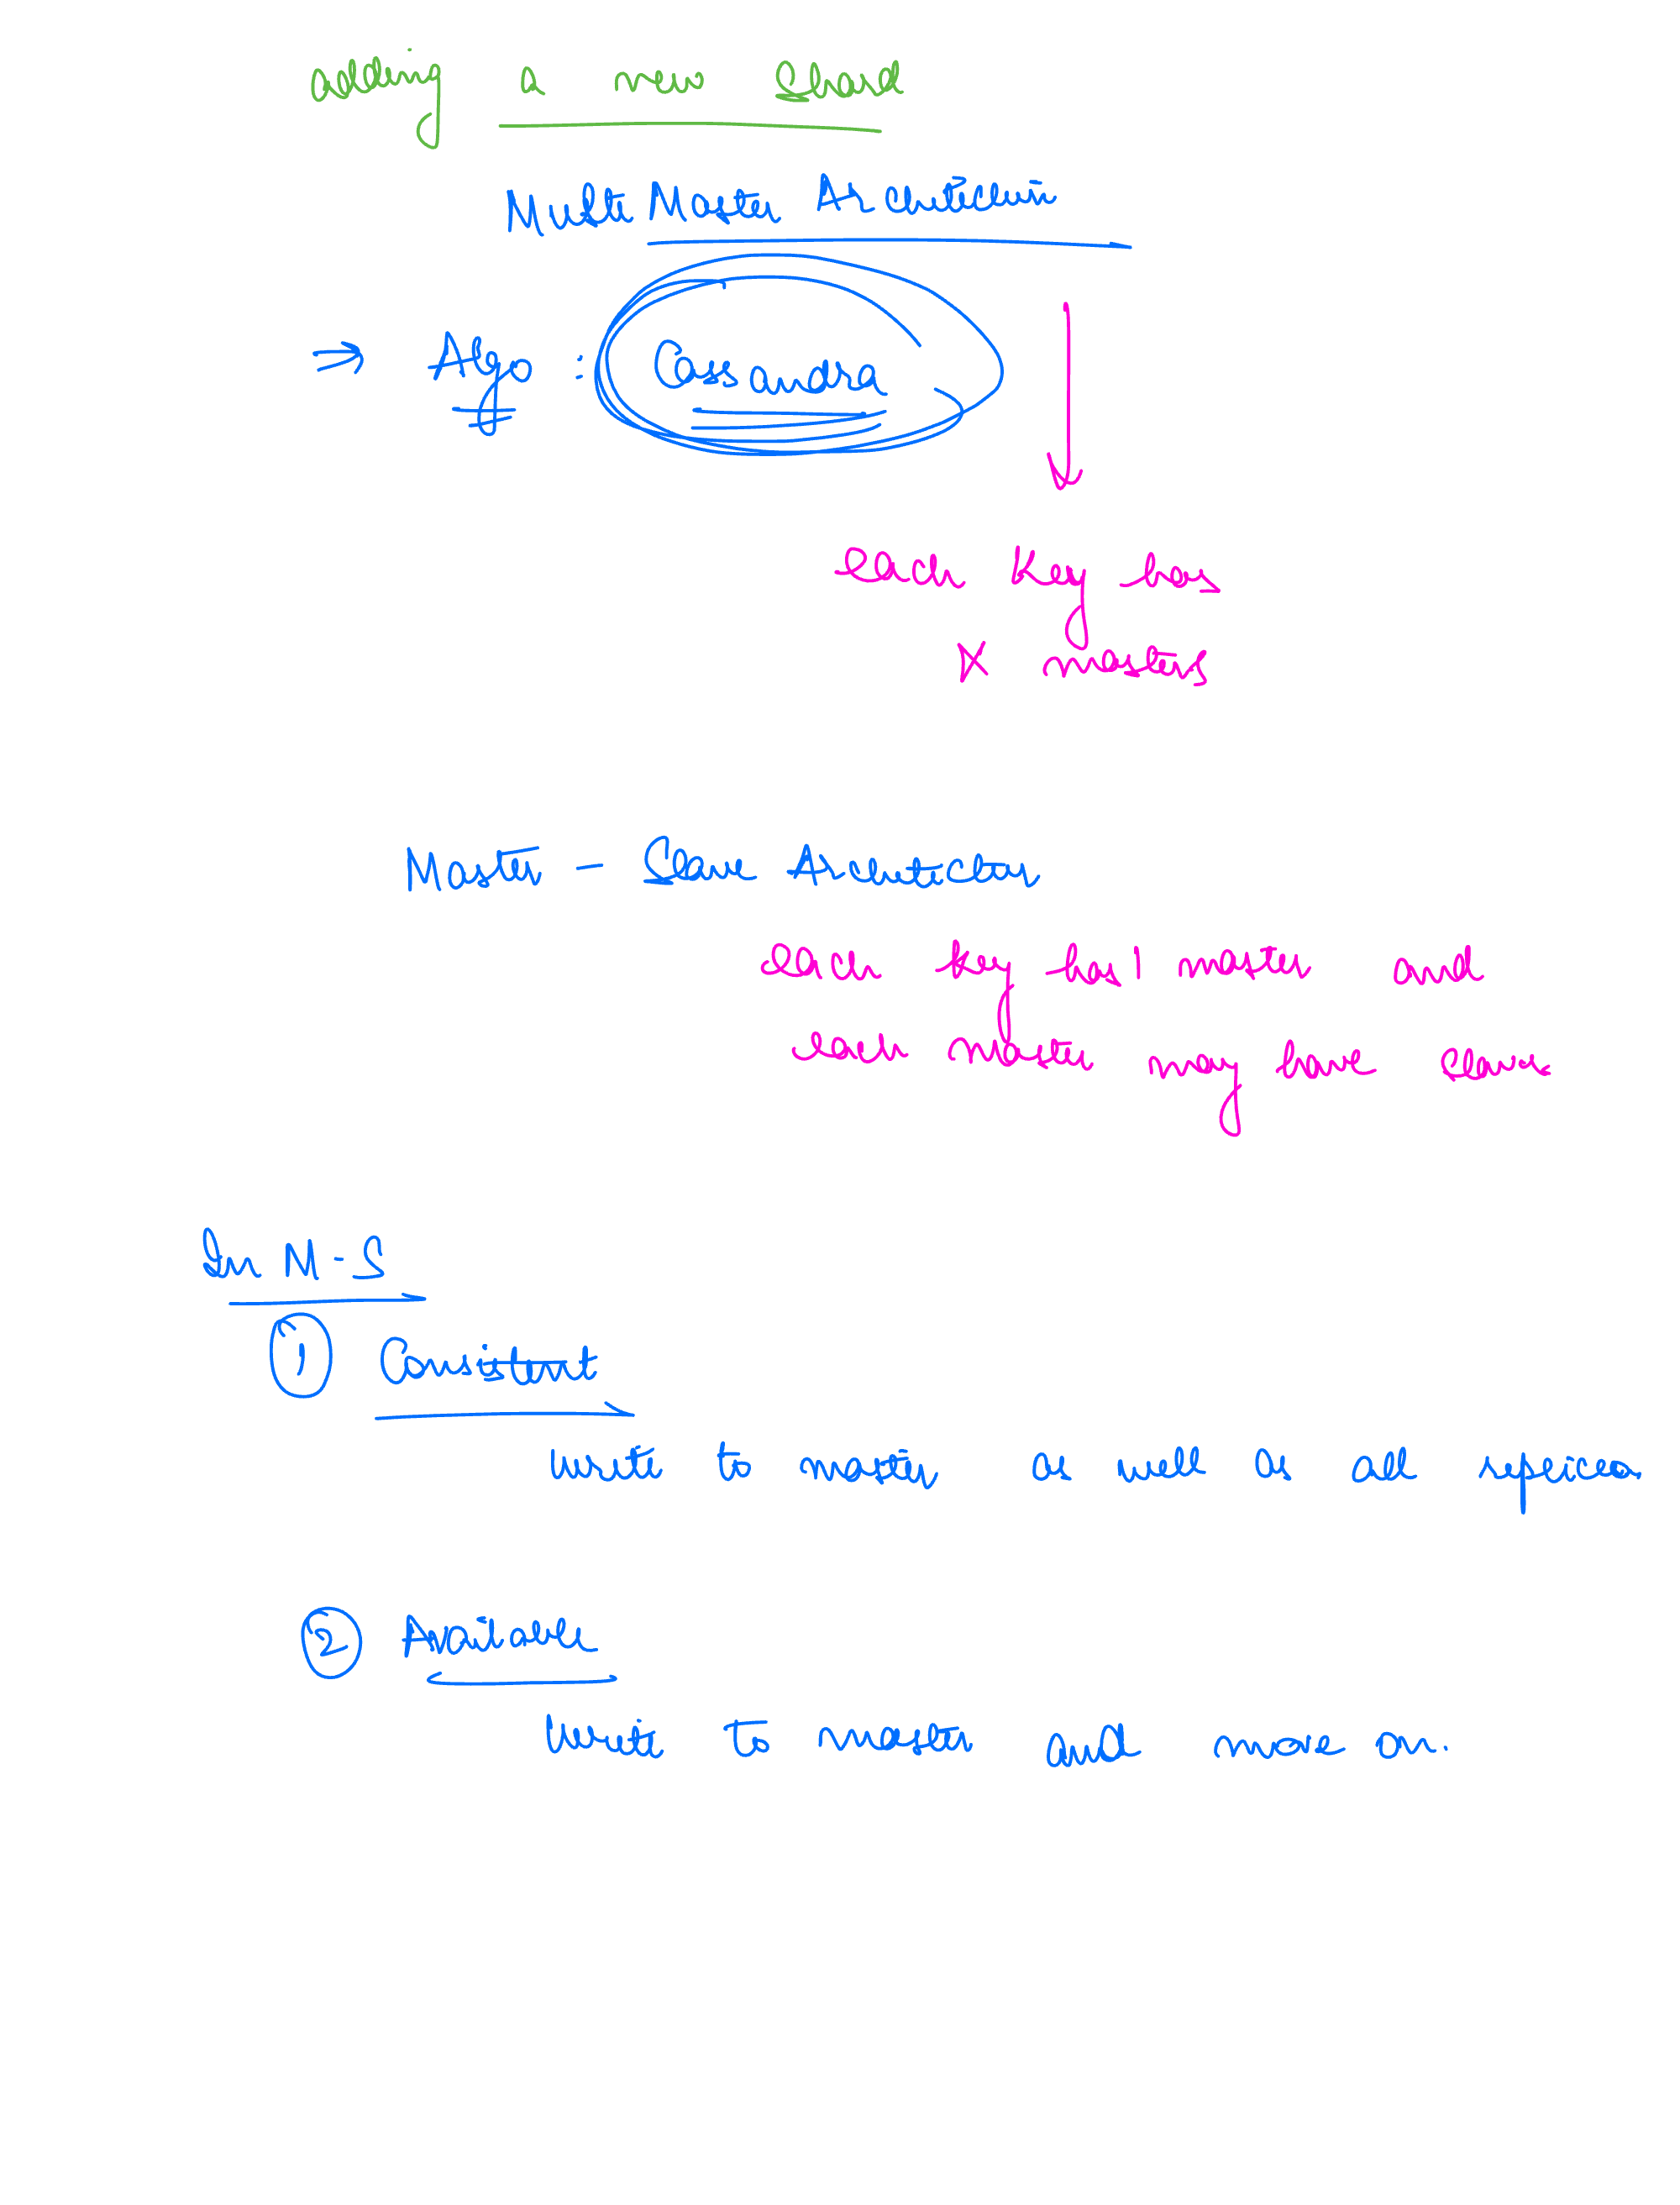 adding a new Shard
Multi Master Architecture
⇒ Algo : Cassandra
each key has
X masters
Master - Slave Architecture
each key has 1 master and
each master may have slaves
In M-S
① Consistent
write to master as well as all replicas
② Available
write to master and move on.